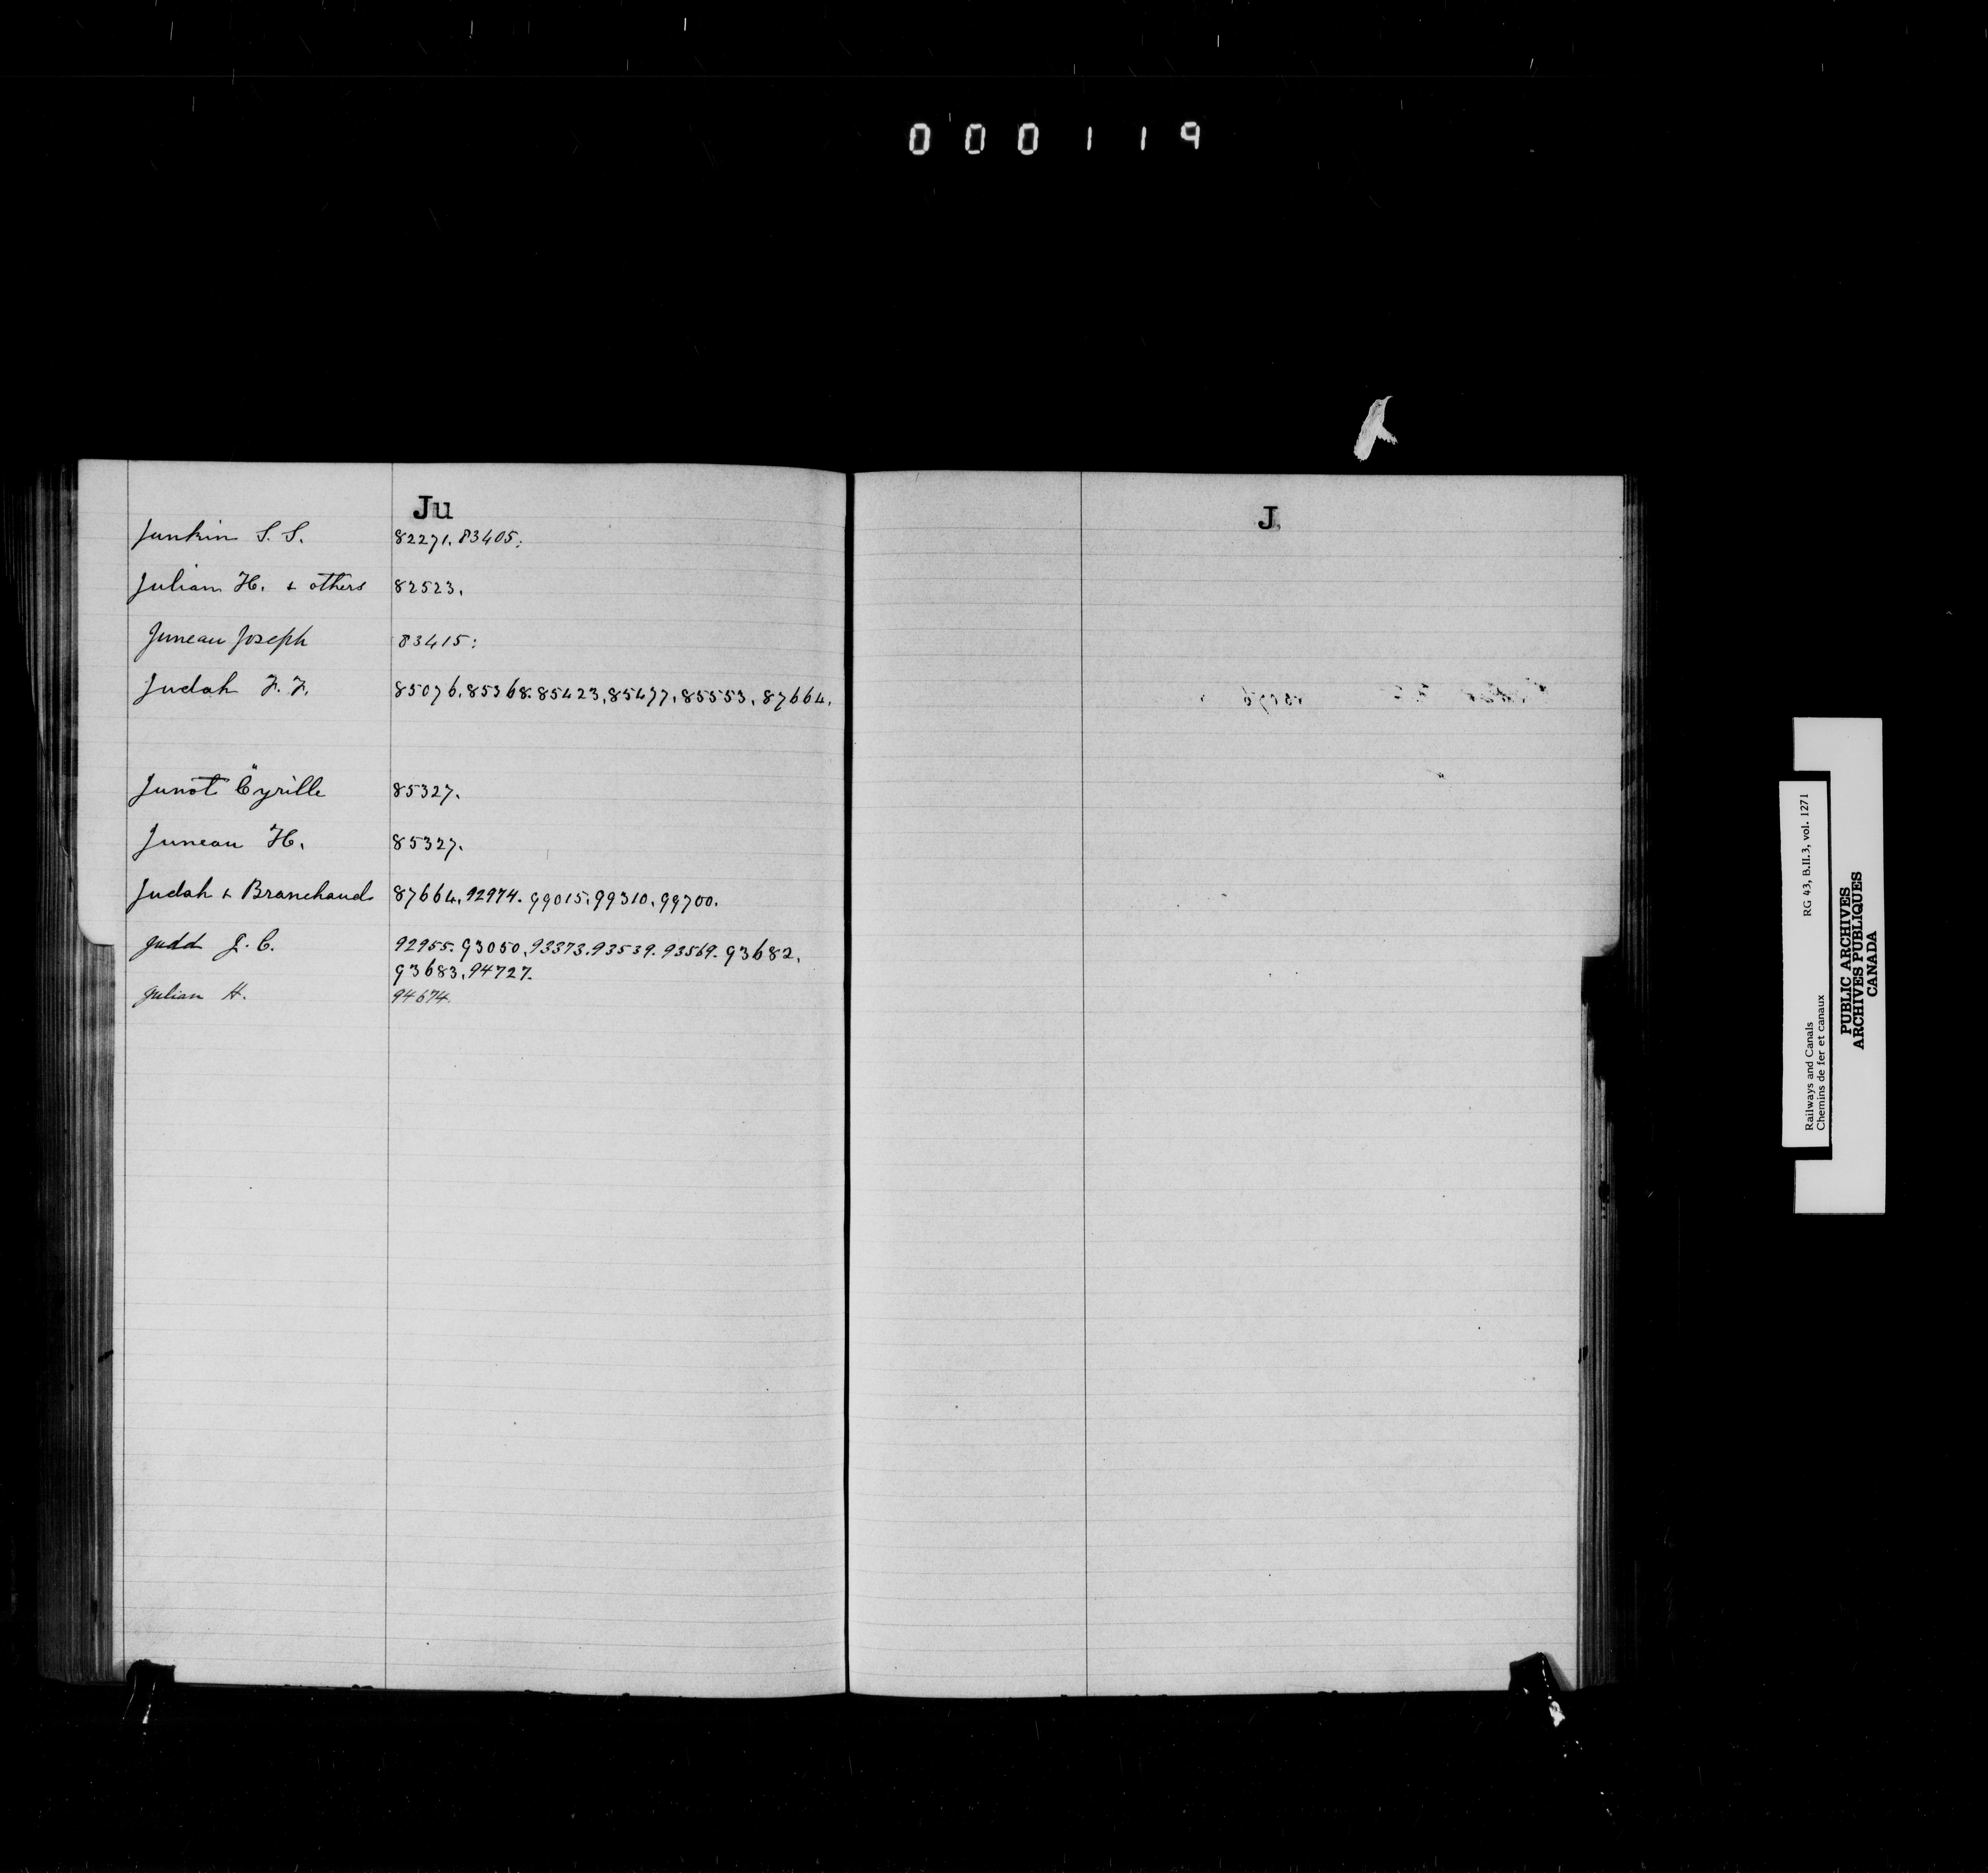 000119
Ju
Junkin S. S. 82271. 83405:
Julian H. & others 82523.
Juneau Joseph 83415:
Judah F. F. 85076. 85368. 85423, 85477, 85553, 87664.
Junot Cyrille 85327.
Juneau H. 85327.
Judah & Branchaud 87664. 92974. 99015. 99310. 99700.
Judd J. C. 92955. 93050. 93373. 93539. 93569. 93682.
93683. 94727.
Julian H. 94674.
J
Railways and Canals RG 43, B.II.3, vol. 1271
Chemins de fer et canaux
PUBLIC ARCHIVES
ARCHIVES PUBLIQUES
CANADA